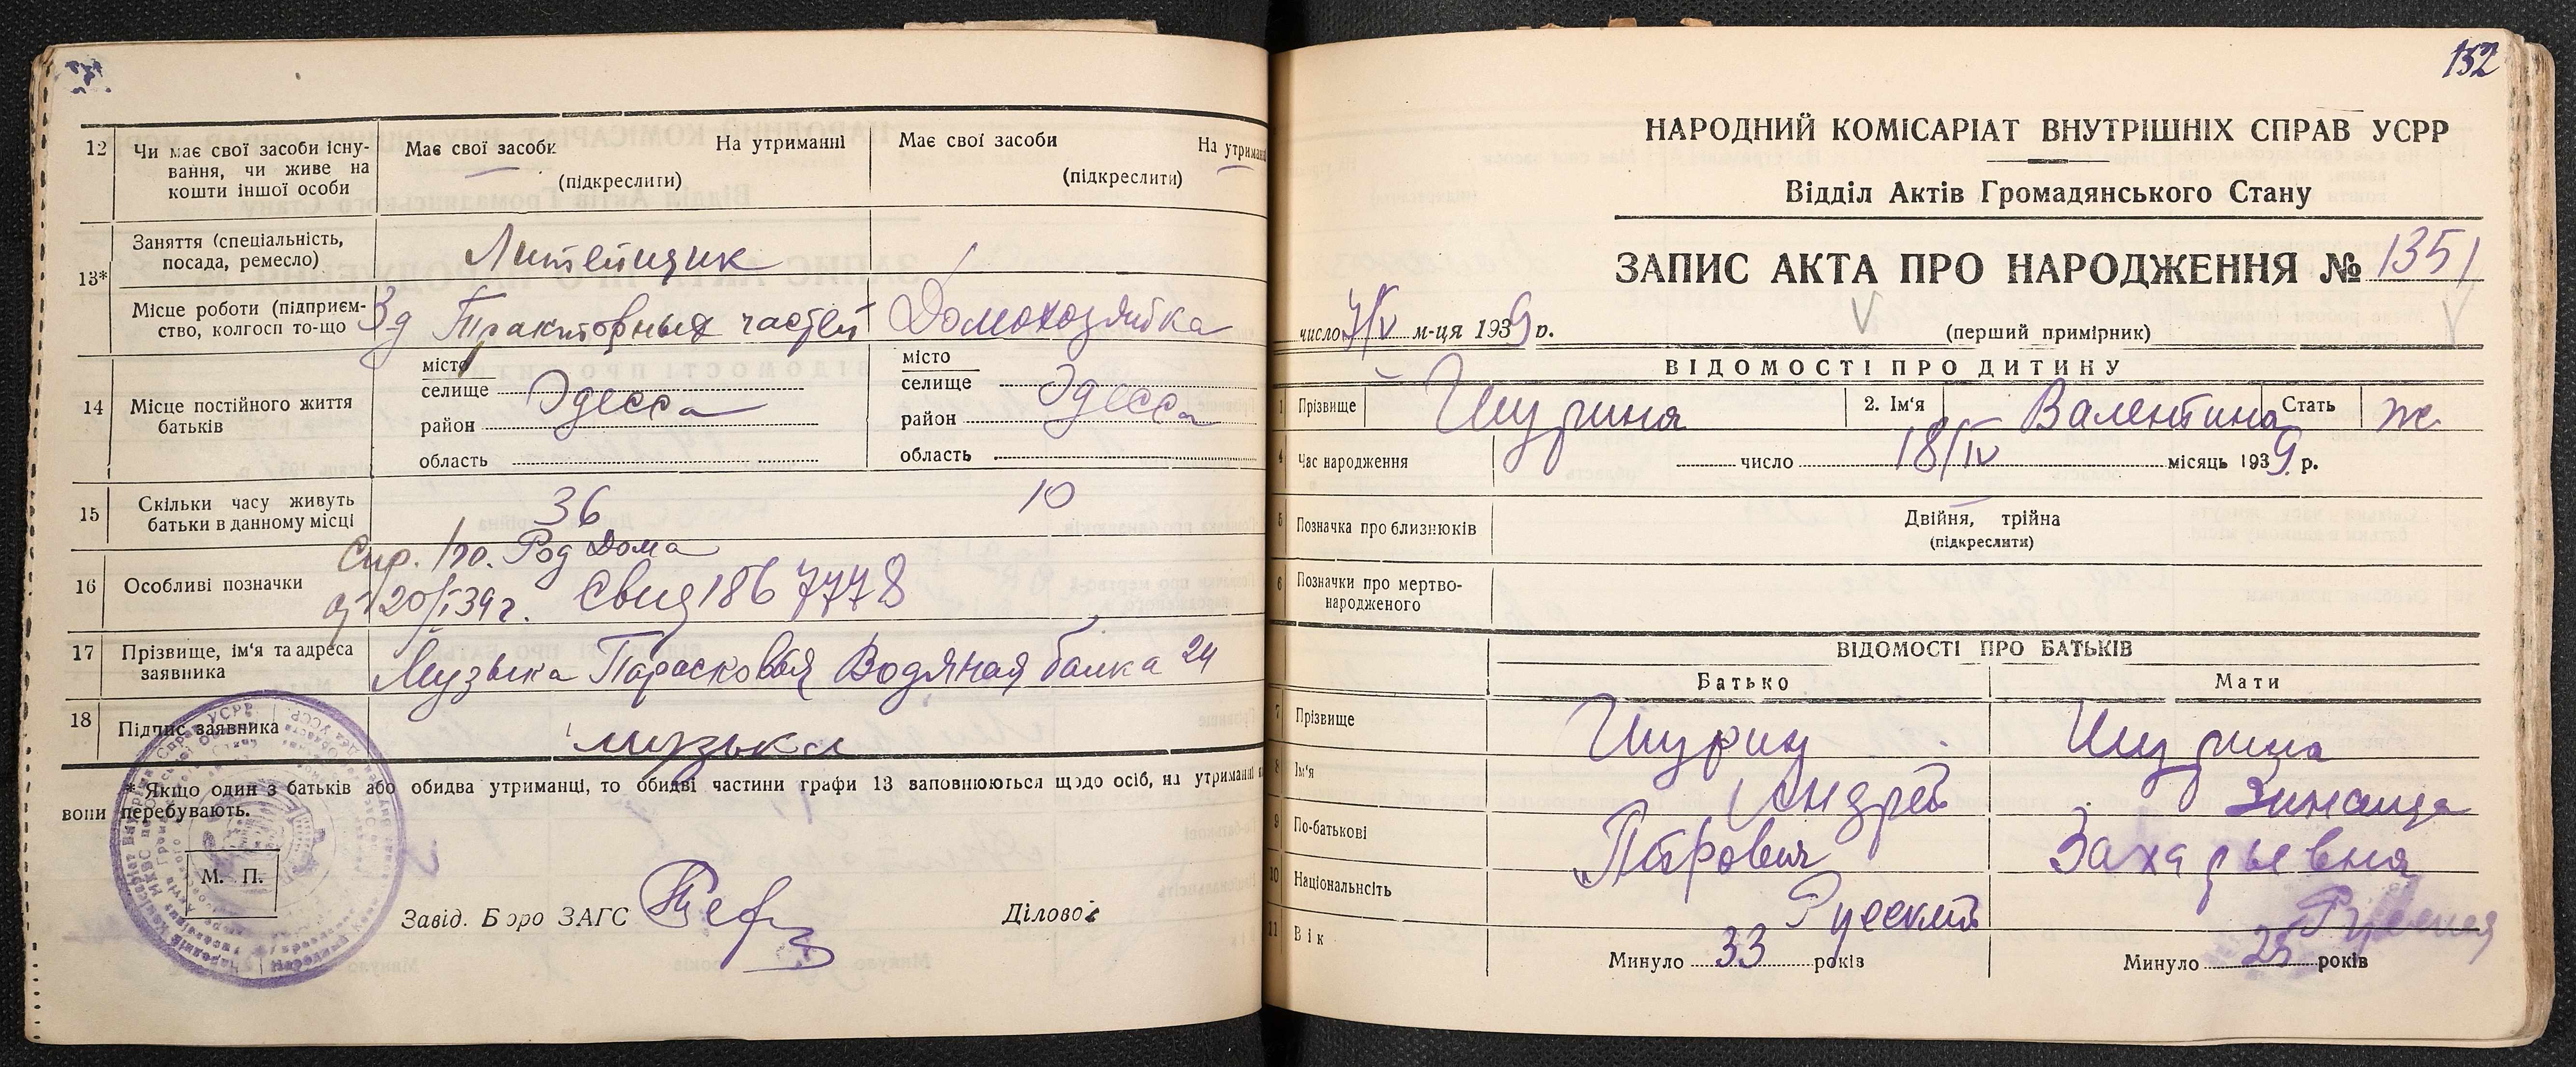 12 Чи має свої засоби існу-
вання, чи живе на
кошти іншої особи
Має свої засоби На утриманні
(підкреслити)
Має свої засоби На утриманні
(підкреслити)
13* Заняття (спеціальність,
посада, ремесло)
Литейщик
Місце роботи (підприєм-
ство, колгосп то-що
Зд Тракторных частей
Домохозяйка
14 Місце постійного життя
батьків
місто
селище
Одесса
район
область
місто
селище
Одесса
район
область
15 Скільки часу живуть
батьки в данному місці
36
10
16 Особливі позначки
Спр. Род Дома
20/V 39 г. Свид 186 7778
17 Прізвище, ім'я та адреса
заявника
Музыка Парасковья Водяная балка 24
18 Підпис заявника
музыка
* Якщо один з батьків або обидва утриманці, то обидві частини графи 13 заповнюються щодо осіб, на утриманні
вони перебувають.
М. П.
Завід. Бюро ЗАГС
Діловод
152
НАРОДНИЙ КОМІСАРІАТ ВНУТРІШНІХ СПРАВ УСРР
Відділ Актів Громадянського Стану
ЗАПИС АКТА ПРО НАРОДЖЕННЯ № 1351
число 7/V м-ця 1939 р.
(перший примірник)
ВІДОМОСТІ ПРО ДИТИНУ
1 Прізвище Шурина 2. Ім'я Валентина Стать ж
4 Час народження число 18/IV місяць 1939 р.
5 Позначка про близнюків
Двійня, трійна
(підкреслити)
6 Позначки про мертво-
народженого
ВІДОМОСТІ ПРО БАТЬКІВ
Батько Мати
7 Прізвище Шурин Шурина
8 Ім'я Андрей Зинаида
9 По-батькові Петрович Захарьевна
10 Національність Русский Русская
11 Вік Минуло 33 років Минуло 25 років